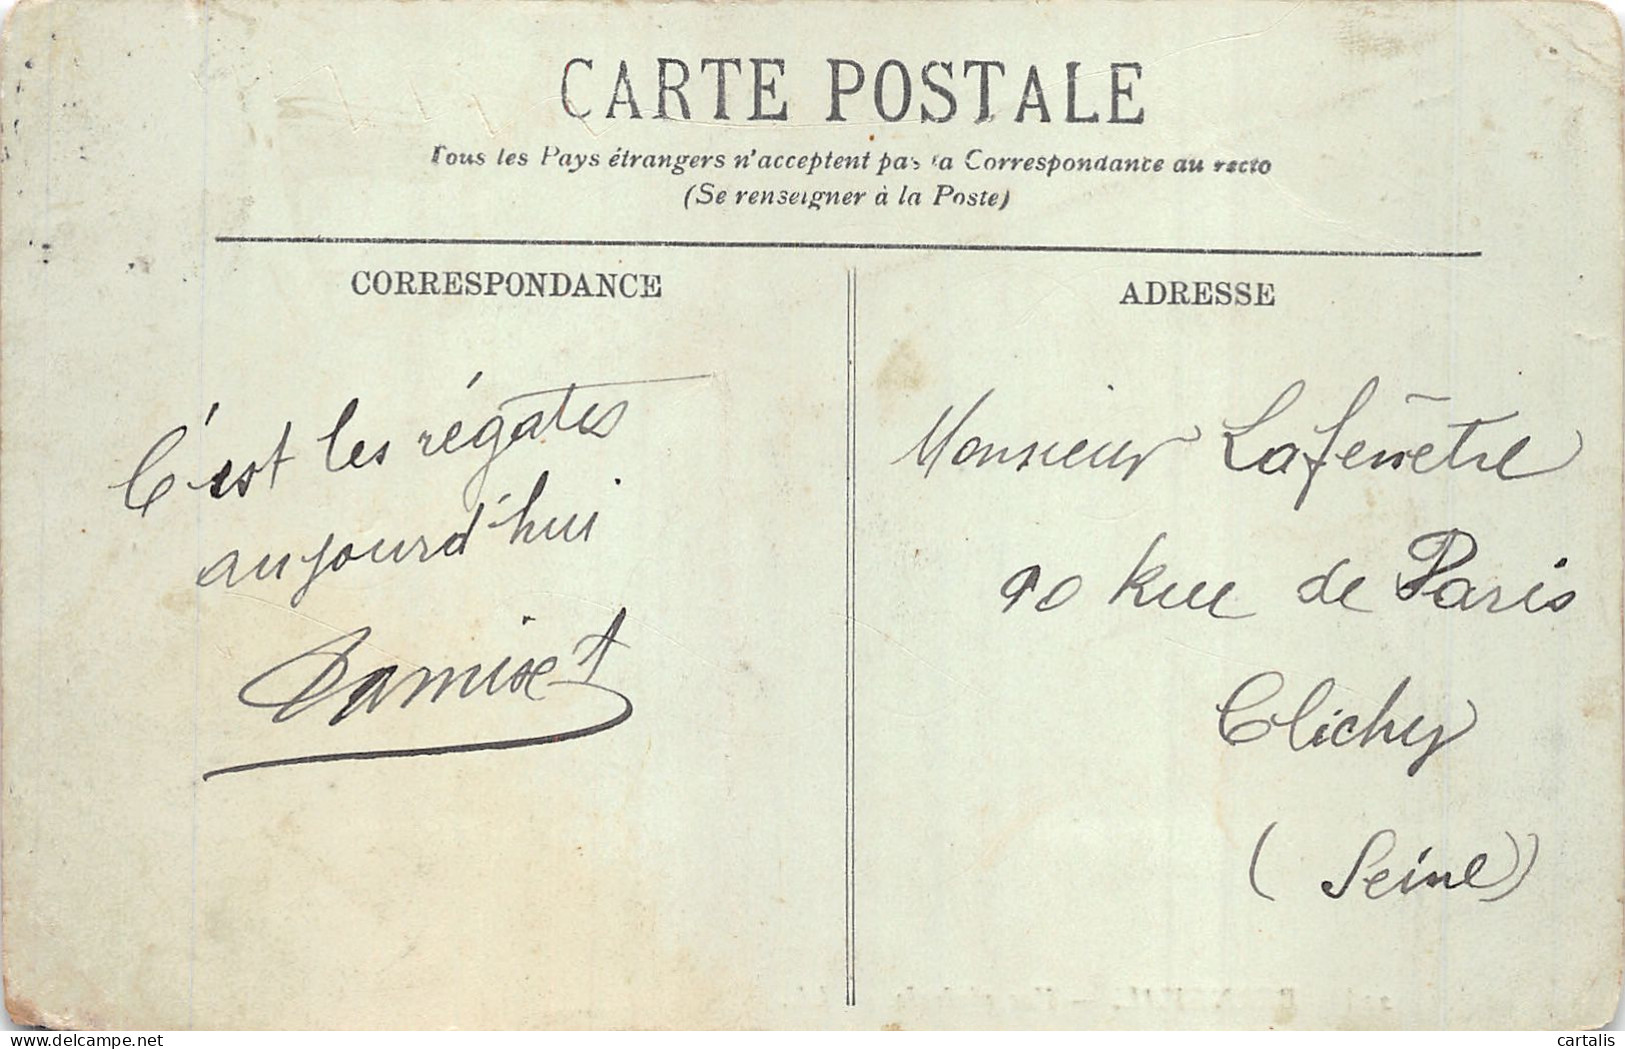 CARTE POSTALE
Tous les Pays étrangers n'acceptent pas la Correspondance au recto
(Se renseigner à la Poste)
CORRESPONDANCE
C'est les régates
aujourd'hui
Damiset
ADRESSE
Monsieur Lafenêtre
90 Rue de Paris
Clichy
(Seine)
delcampe.net
cartalis